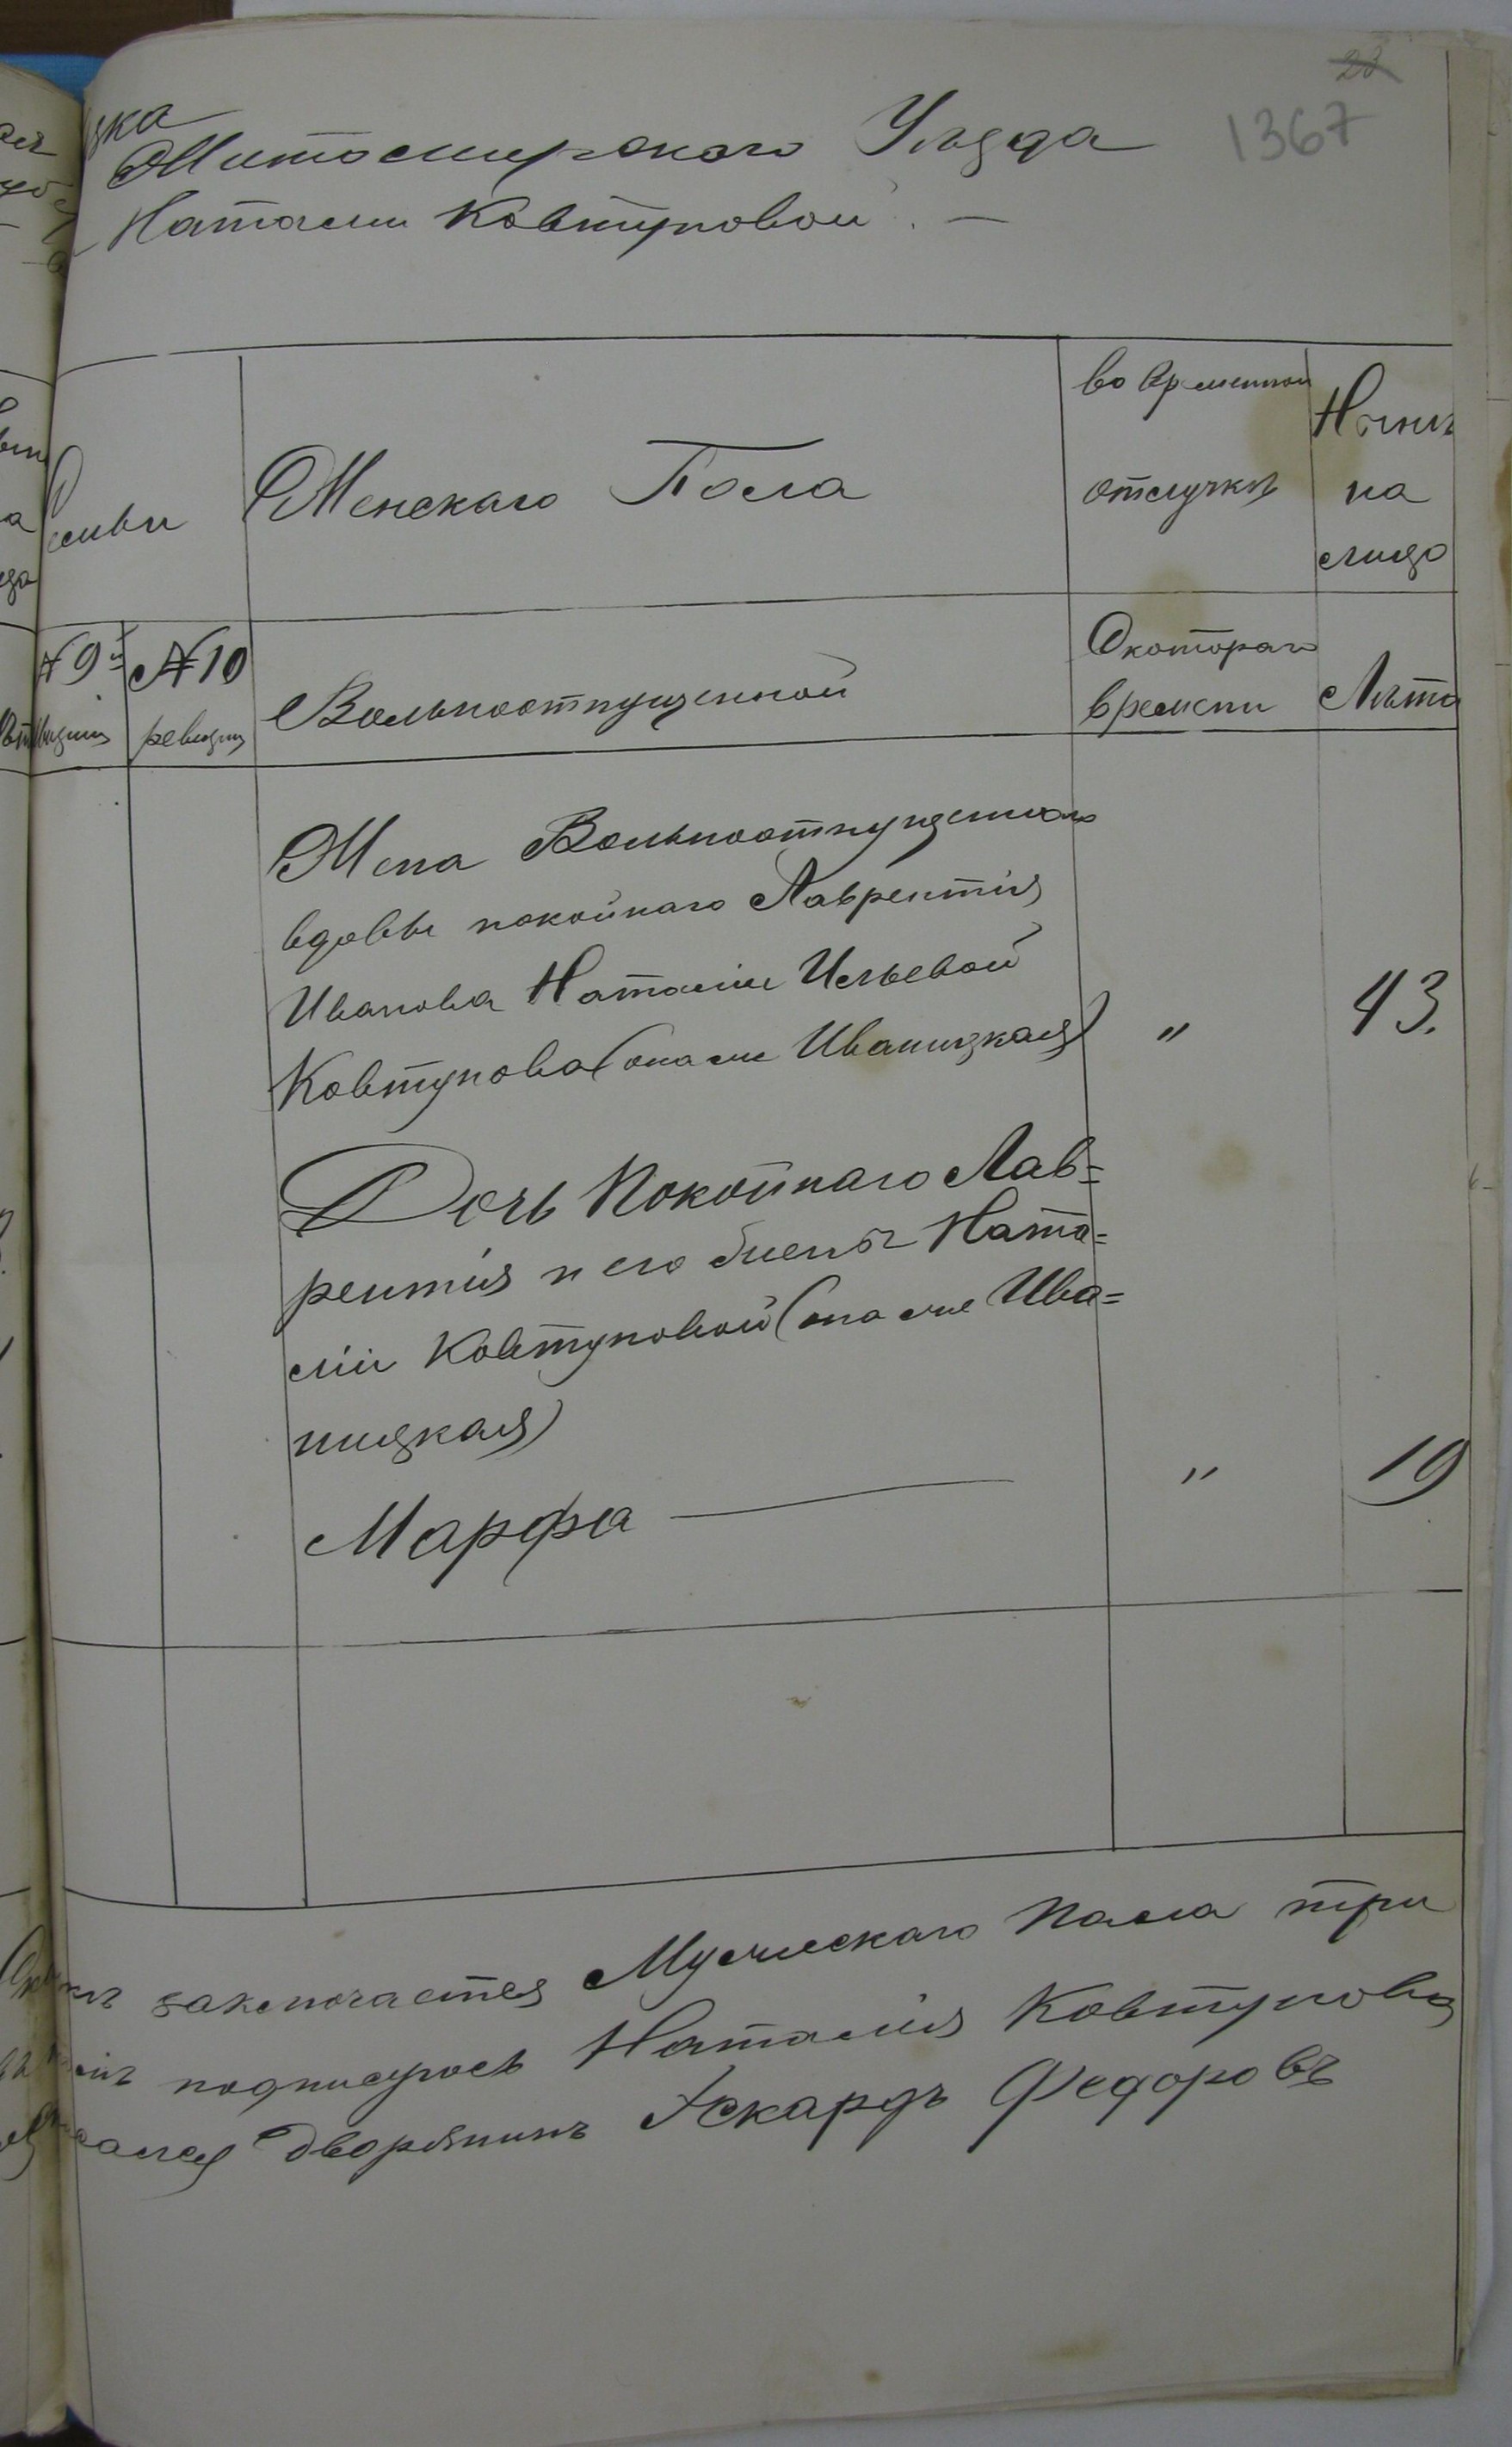 23
1367
зка
Житомирскаго Уѣзда
Наталiи Ковтуновой. —
Семьи
Женскаго Пола
во временной
отлучкѣ
Нынѣ
на
лицо
№ 9й
№ 10
ревизiи
Вольноотпущенной
Съ котораго
времени
Лѣта
Жена Вольноотпущеннаго
вдовы покойнаго Лаврентiя
Иванова Наталiи Ильевой
Ковтунова (она же Иваницкая) " 43.
Дочь Покойнаго Лав=
рентiя и его жены Ната=
лiи Ковтуновой (она же Ива=
ницкая)
Марфа — " 19
заключается Мужескаго пола три
подписуюсь Наталiя Ковтунова
Дворянинъ Федоровъ